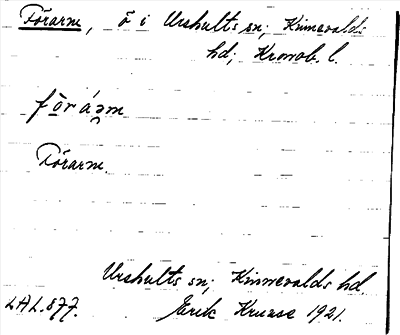 Förarm, ö i Urshults sn; Kinnevalds
hd; Kronob. l.
förám
Förarm.
Urshults sn; Kinnevalds hd.
LAL. 877. Erik Kruuse 1921.